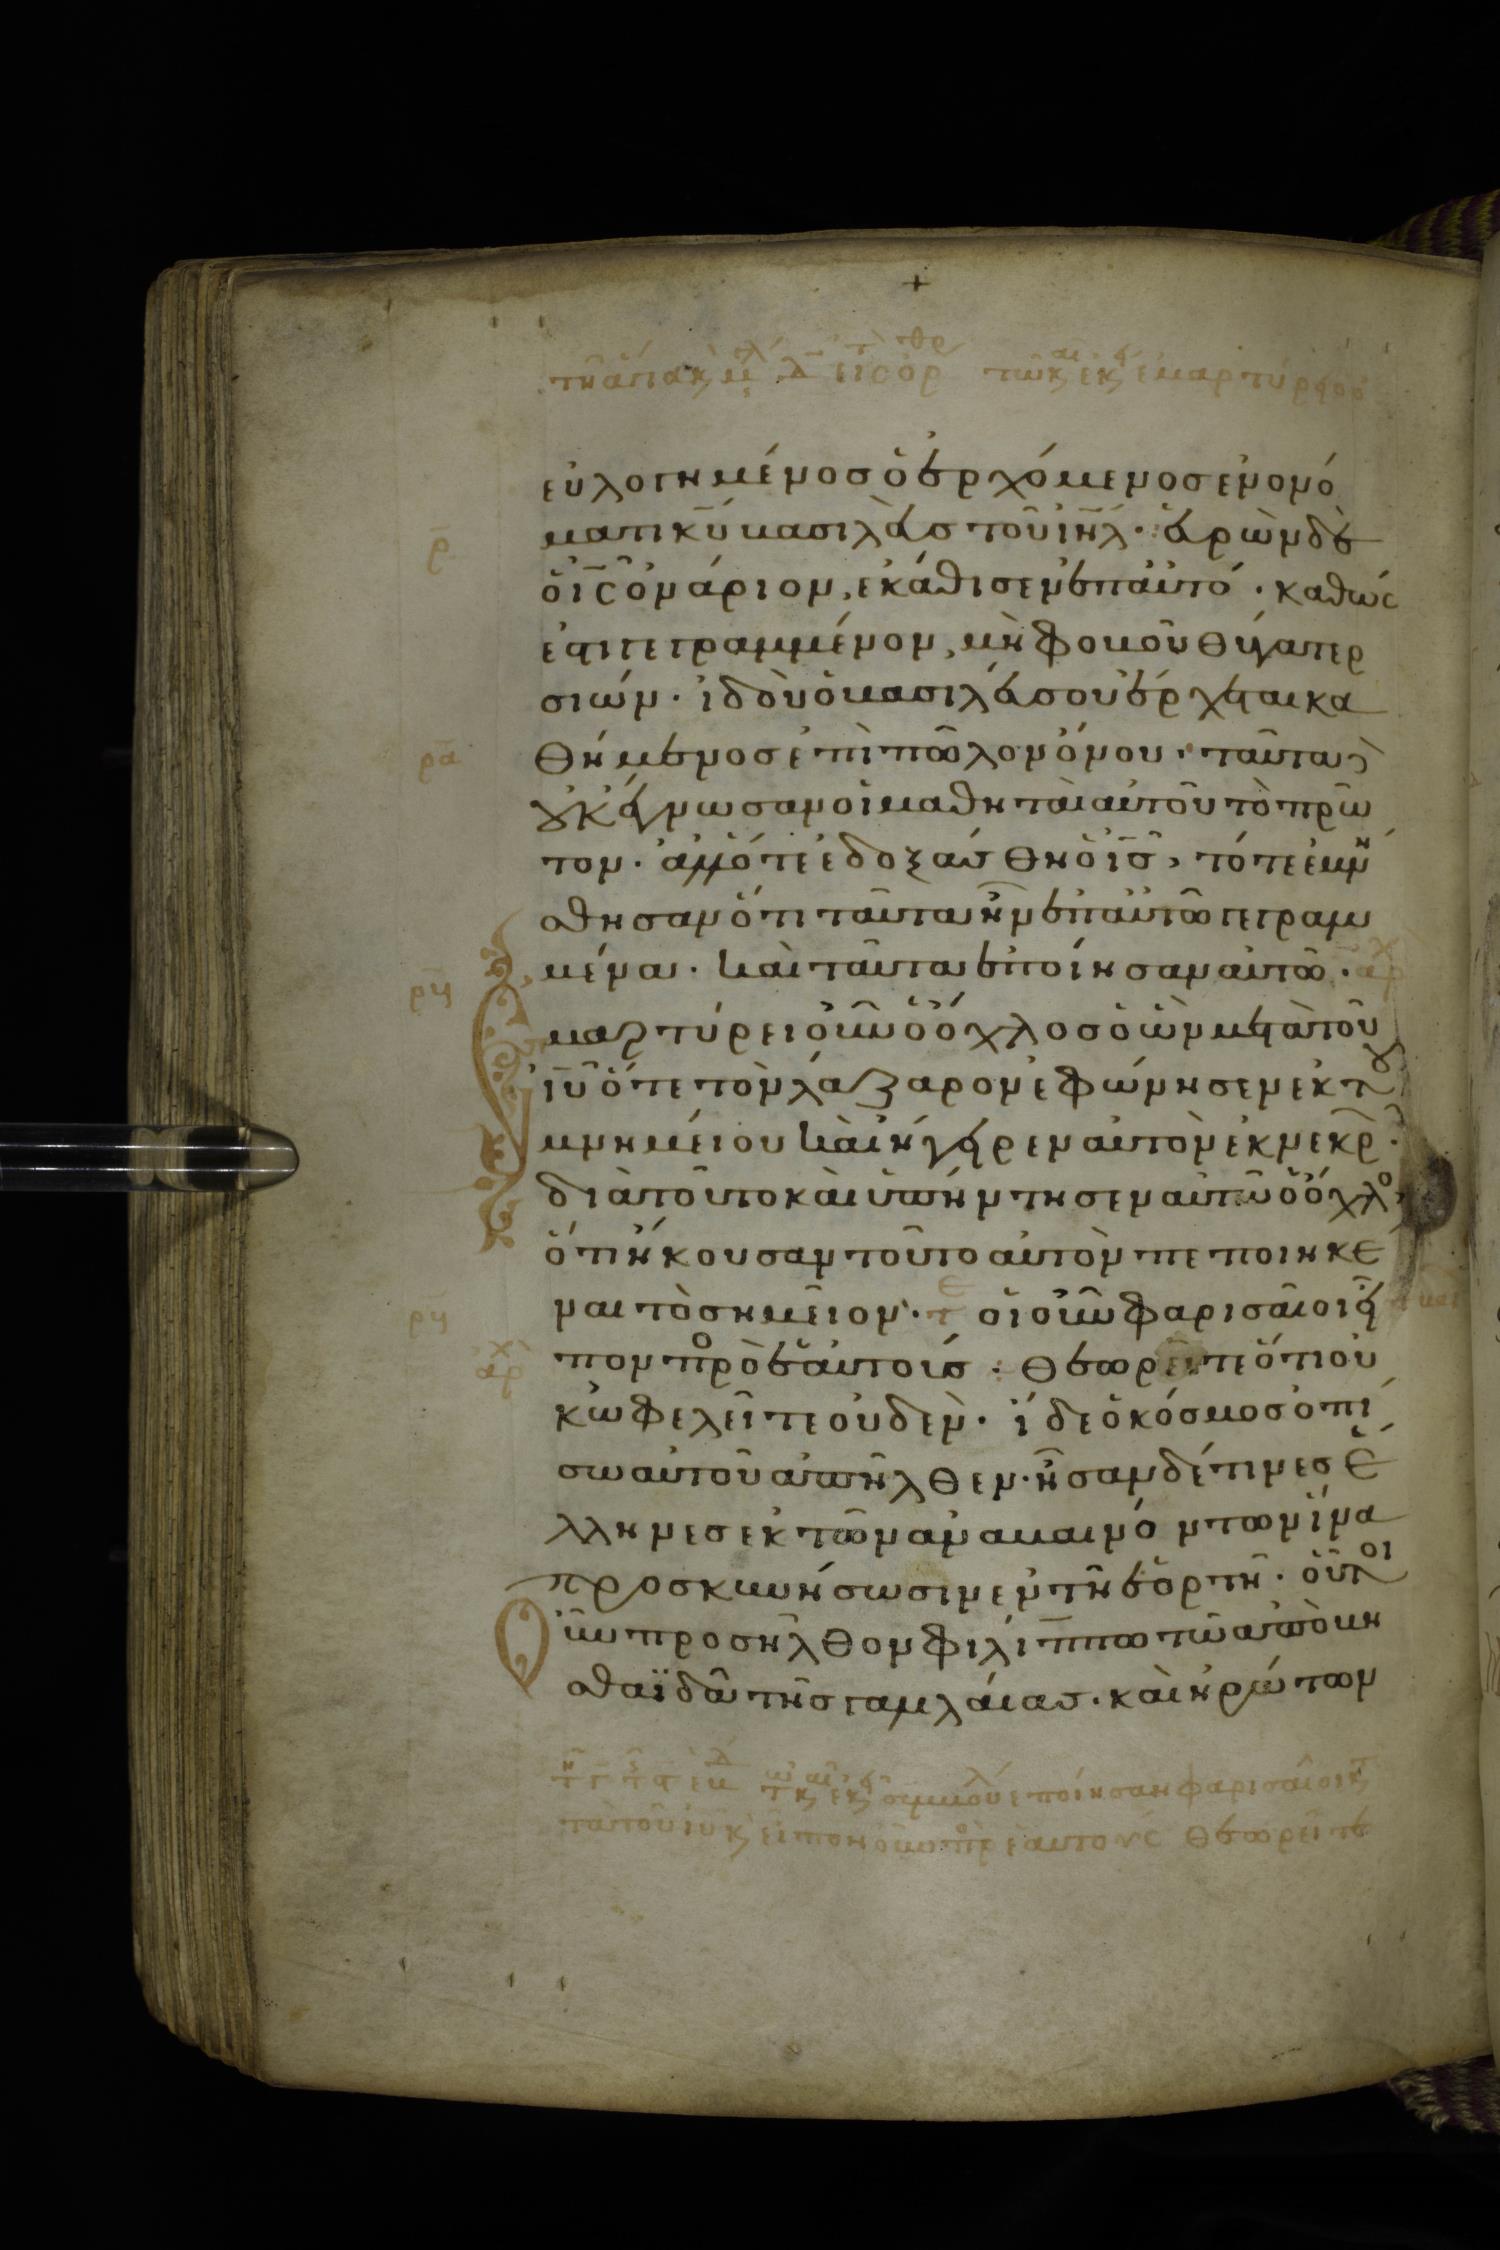 εὐλογημένος ὁ ἐρχόμενος ἐν ὀνό
ματι κ̅υ̅ βασιλεὺς τοῦ ἰ̅η̅λ̅· εὑρὼν δὲ
ρ̅
ὁ ι̅ς̅ ὀνάριον, ἐκάθισεν ἐπ αὐτό· καθώς
ἐστι γεγραμμένον, μὴ φοβοῦ θύγατερ
σιών· ἰδοὺ ὁ βασιλεύς σου ἔρχεται κα
ρ̅α̅
θήμενος ἐπὶ πῶλον ὄνου· ταῦτα δὲ
οὐκ ἔγνωσαν οἱ μαθηταὶ αὐτοῦ τὸ πρῶ
τον· ἀλλ ὅτε ἐδοξάσθη ὁ ι̅ς̅, τότε ἐμνή
σθησαν ὅτι ταῦτα ἦν ἐπ αὐτῶ γεγραμ
μένα· καὶ ταῦτα ἐποίησαν αὐτῶ· αρχ
ρ̅β̅
Ἐμαρτύρει οὖν ὁ ὄχλος ὁ ὢν μετὰ τοῦ
ι̅υ̅ ὅτε τὸν λάζαρον ἐφώνησεν ἐκ τοῦ
μνημείου καὶ ἤγειρεν αὐτὸν ἐκ νεκρ·
διὰ τοῦτο καὶ ὑπήντησεν αὐτῶ ὁ ὄχλο,
ὅτι ἤκουσαν τοῦτο αὐτὸν πεποιηκέ
ρ̅γ̅
ναι τὸ σημεῖον· τε οἱ οὖν φαρισαῖοι εἶ
αρχ
πον προ ἑαυτούς· θεωρεῖτε ὅτι οὐ
κ ὠφελεῖτε οὐδέν· ἴδε ὁ κόσμος ὀπί
σω αὐτοῦ ἀπῆλθεν· ἦσαν δέ τινες ἕ
λληνες ἐκ τῶν ἀναβαινόντων ἵνα
προσκυνήσωσιν ἐν τῆ ἑορτῆ· οὗτοι
Οὖν προσῆλθον φιλίππω τῶ ἀπὸ βη
θσαϊδὰ τῆς γαλιλαίας· καὶ ἠρώτων